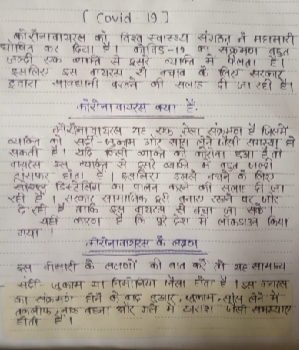 [ Covid - 19 ]
कोरोनावायरस को विश्व स्वास्थ्य संगठन ने महामारी
घोषित कर दिया है । कोविड-19 का संक्रमण बहुत
जल्दी एक व्यक्ति से दूसरे व्यक्ति में फैलता है ।
इसलिए इस वायरस से बचाव के लिए सरकार
द्वारा सावधानी बरतने की सलाह दी जा रही है ।
कोरोनावायरस क्या है:
कोरोनावायरस यह एक ऐसा संक्रमण है जिसमें
व्यक्ति को सर्दी-जुकाम और सांस लेने जैसी समस्या हो
सकती है । यदि किसी व्यक्ति को कोरोना हुआ है तो
वायरस इस व्यक्ति से दूसरे व्यक्ति में बहुत जल्दी
होता है । इसलिए इससे बचने के लिए
सोशल डिस्टेंसिंग का पालन करने की सलाह दी जा
रही है । सरकार सामाजिक दूरी बनाए रखने पर जोर
दे रही है ताकि इस वायरस से बचा जा सके ।
यही कारण है कि पूरे देश में लॉकडाउन किया
गया ।
कोरोनावायरस के लक्षण
इस बीमारी के लक्षणों की बात करें तो यह सामान्य
सर्दी-जुकाम या निमोनिया जैसा होता है । इस वायरस
का संक्रमण होने के बाद बुखार, जुकाम, सांस लेने में
तकलीफ, नाक बहना और गले में खराश जैसी समस्याएं
होती है ।